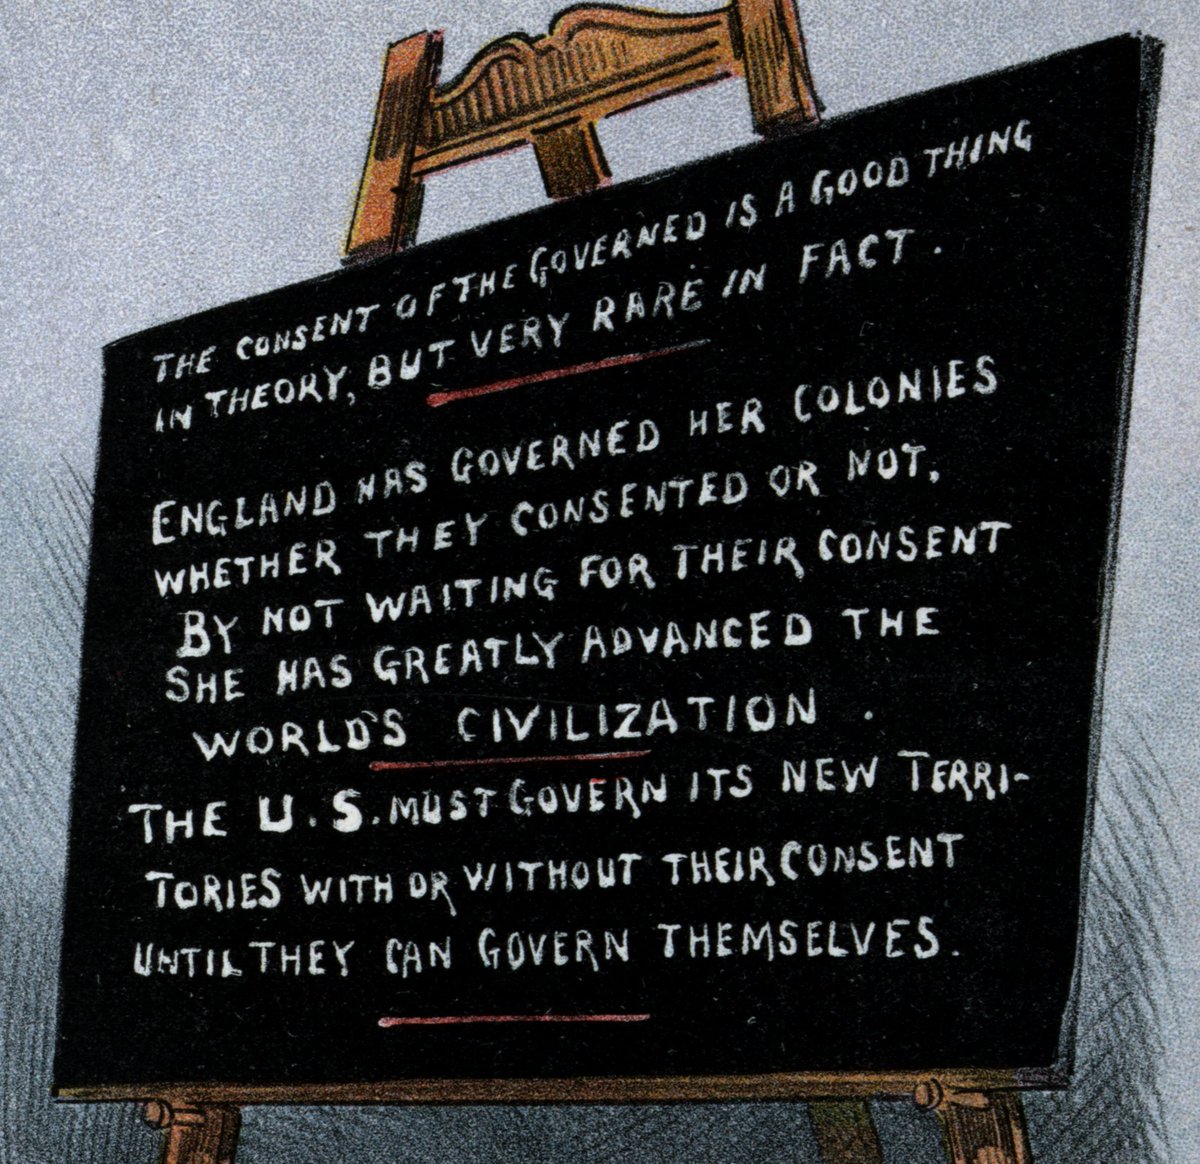 THE CONSENT OF THE GOVERNED IS A GOOD THING
IN THEORY, BUT VERY RARE IN FACT.
ENGLAND HAS GOVERNED HER COLONIES
WHETHER THEY CONSENTED OR NOT.
BY NOT WAITING FOR THEIR CONSENT
SHE HAS GREATLY ADVANCED THE
WORLD'S CIVILIZATION.
THE U.S. MUST GOVERN ITS NEW TERRI-
TORIES WITH OR WITHOUT THEIR CONSENT
UNTIL THEY CAN GOVERN THEMSELVES.